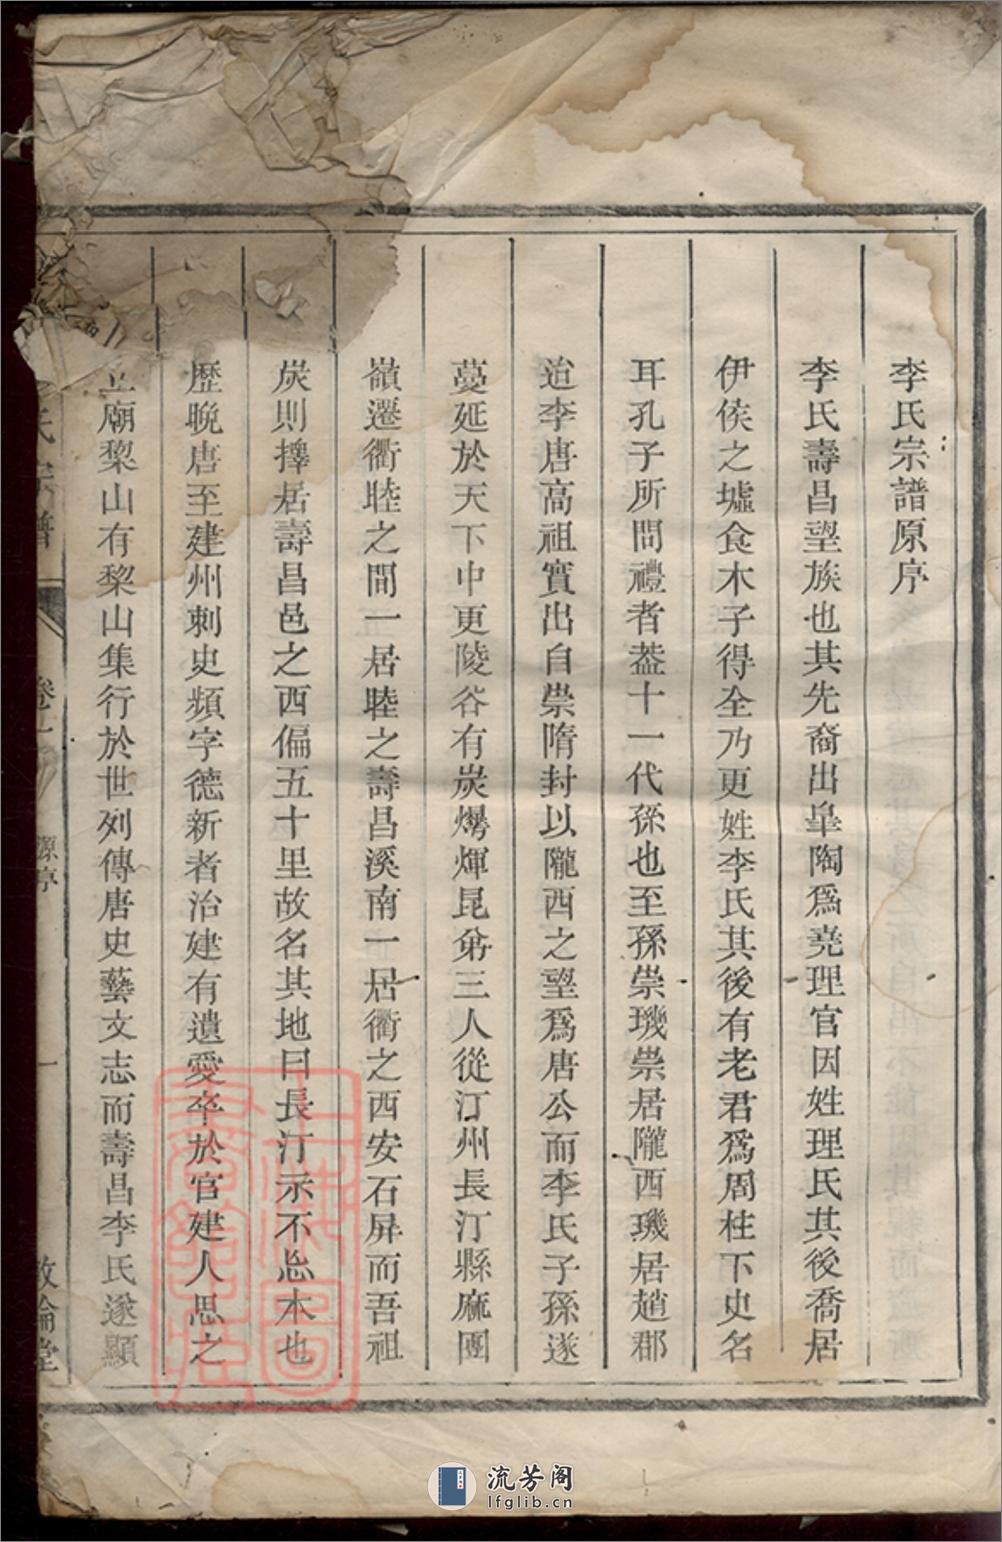 李氏宗譜原序
李氏壽昌望族也其先裔出臯陶爲堯理官因姓理氏其後喬居
伊侯之墟食木子得全乃更姓李氏其後有老君爲周柱下史名
耳孔子所問禮者葢十一代孫也至孫崇璣崇居隴西璣居趙郡
迨李唐高祖實出自崇隋封以隴西之望爲唐公而李氏子孫遂
蔓延於天下中更陵谷有炭爆煇昆弟三人從汀州長汀縣麻團
嶺遷衢睦之間一居睦之壽昌溪南一居衢之西安石屏而吾祖
炭則擇居壽昌邑之西偏五十里故名其地曰長汀示不忘本也
歷晩唐至建州刺史頻字德新者治建有遺愛卒於官建人思之
立廟棃山有棃山集行於世列傳唐史藝文志而壽昌李氏遂顯
氏宗譜
卷
源序
一
敦倫堂
流芳阁
lfglib.cn